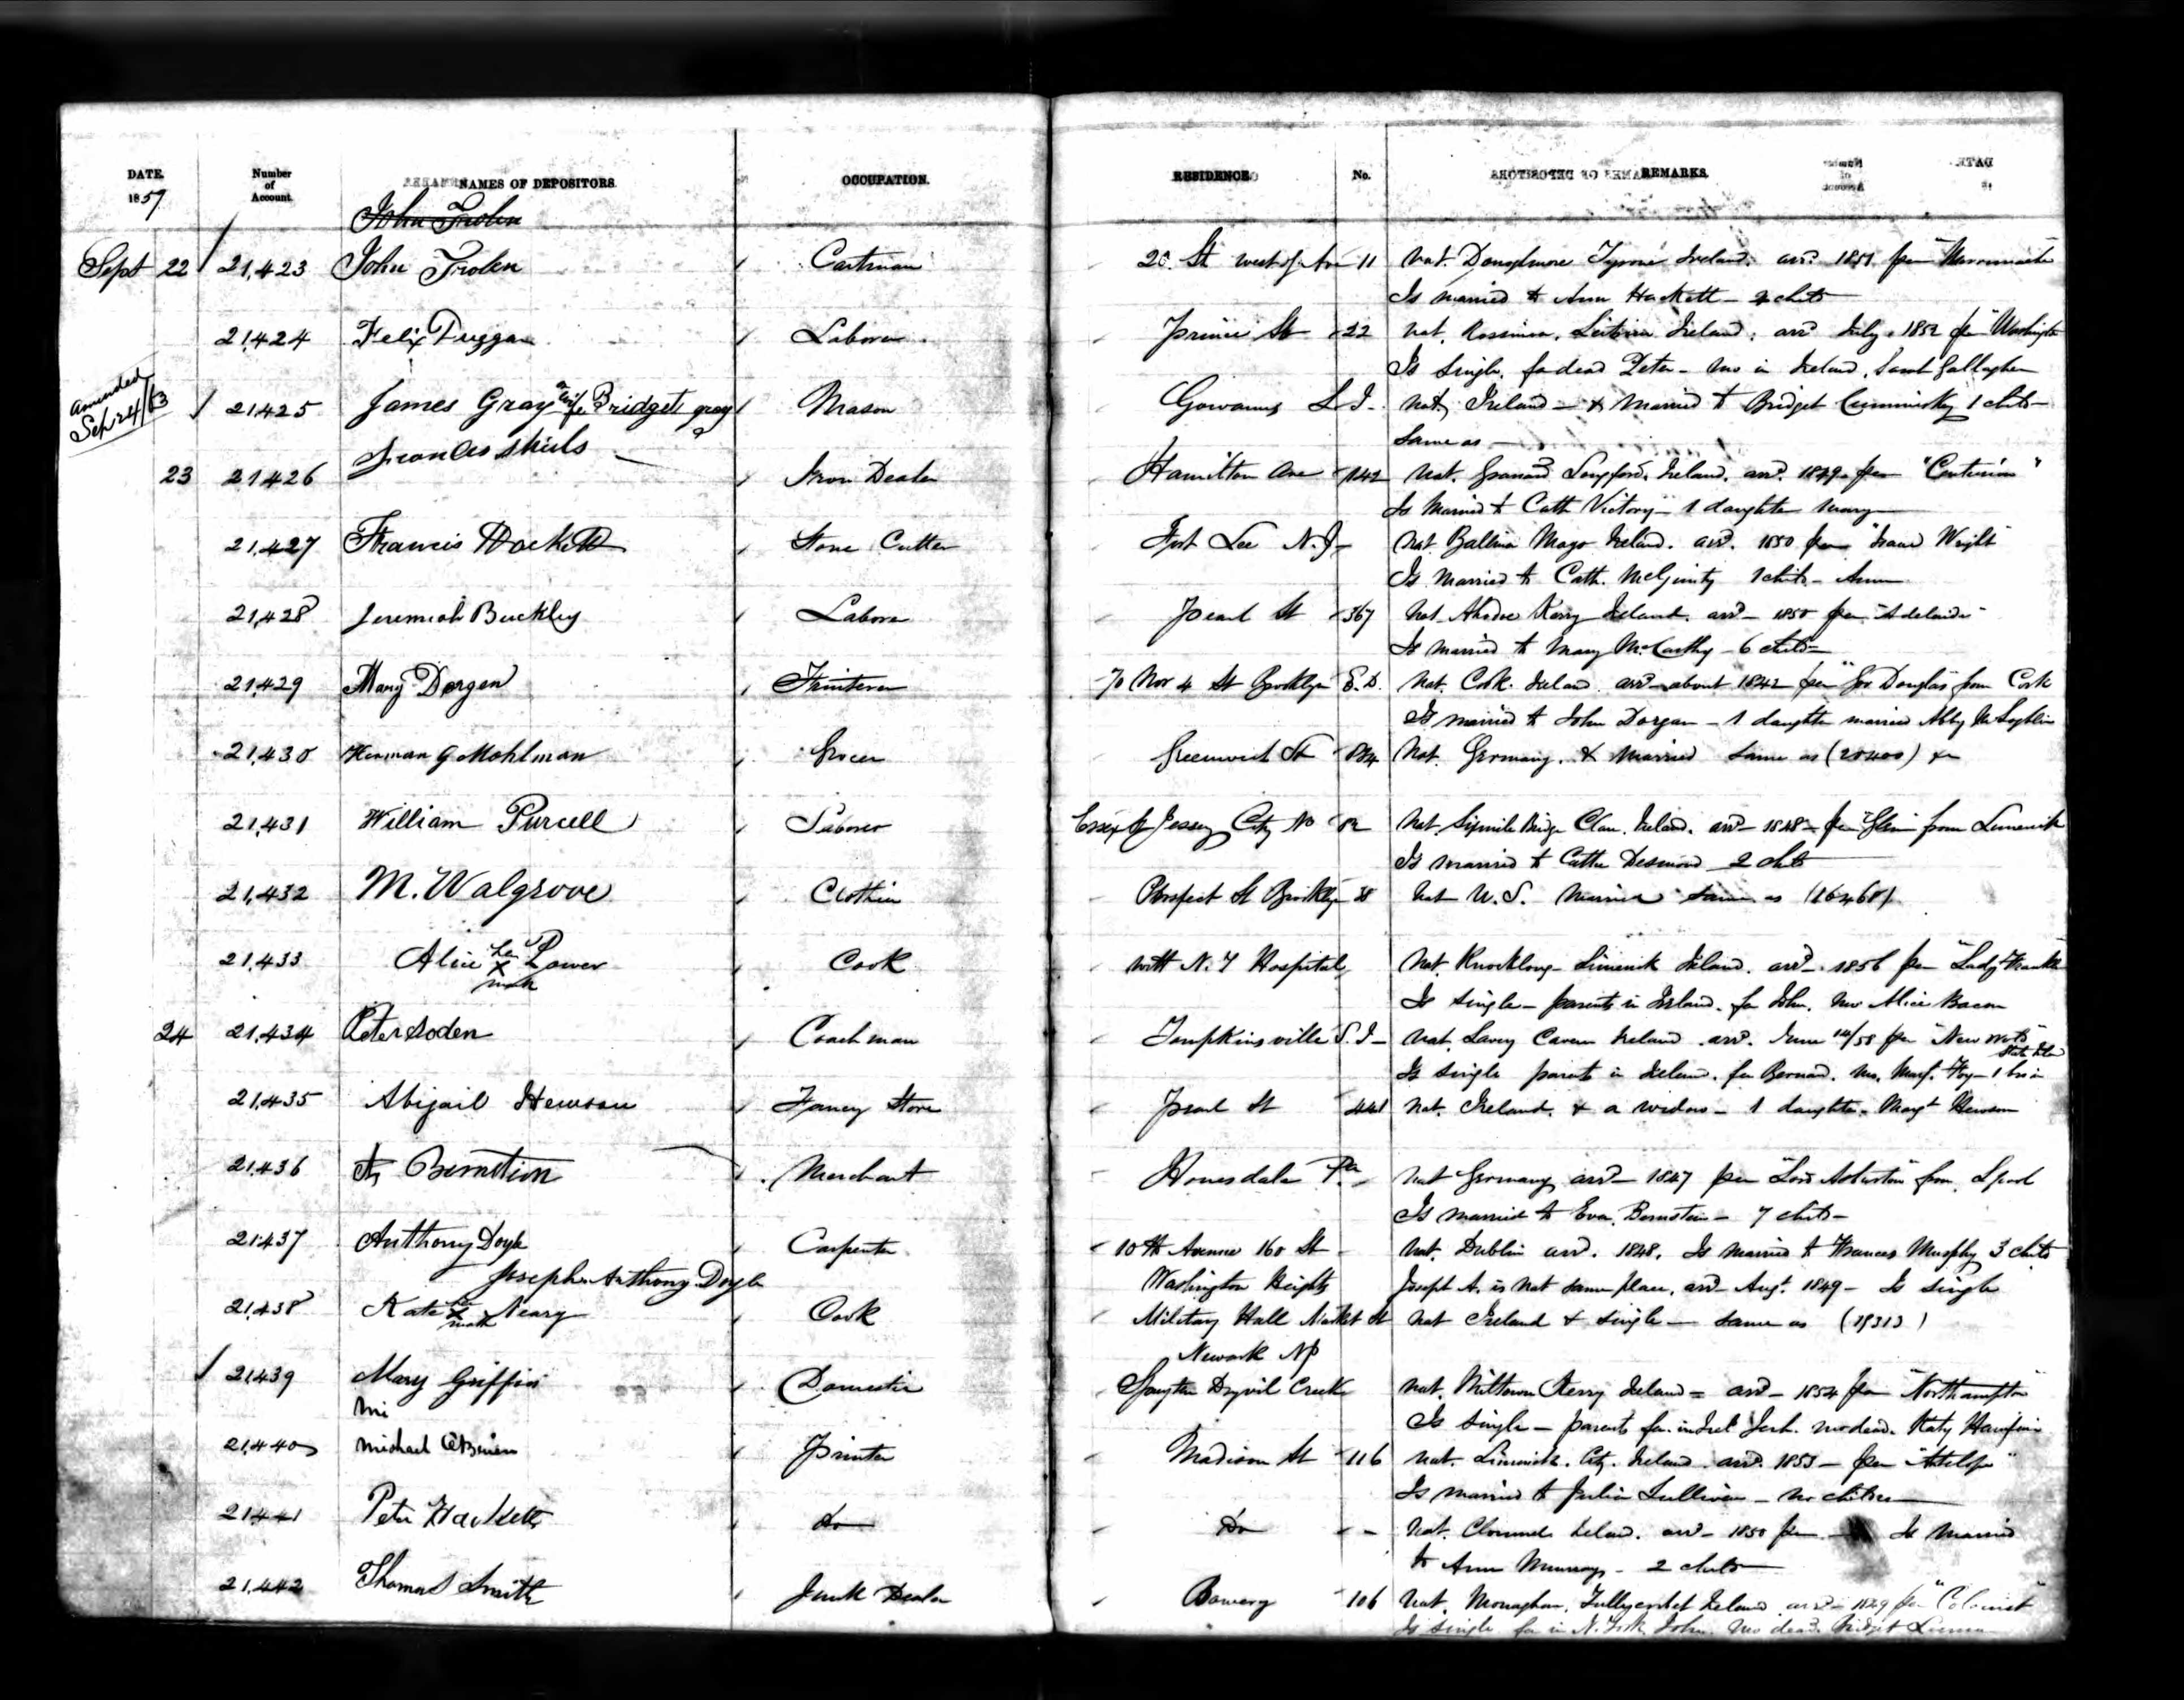 DATE. Number of Account. NAMES OF DEPOSITORS. OCCUPATION. RESIDENCE No. REMARKS.
1859
John Trolen
Sept 22 21,423 John Trolen Cartman 20. St west of Ave 11 Nat. Donaghmore Tyrone Ireland. arrd. 1851 per
Is married to Ann Hackett - 2 childn
21,424 Felix Duggan Laborer Prince St 22 Nat. Leitrim Ireland. arrd July 1852 per "Washington
Is single. fa dead Peter - mo in Ireland, Sarah Gallagher
amended Sep 24/63 21,425 James Gray or wife Bridget gray Mason Gowanus L.I. Nat. Ireland - & Married to Bridget 1 child -
Same as
23 21,426 Francis Shiels Iron Dealer Hamilton Ave 142 Nat. Granard Longford. Ireland. arrd. 1849 per "Centurion"
Is Married to Cath Victory - 1 daughter Mary
21,427 Francis Hackett Stone Cutter Fort Lee N.J. Nat. Ballina Mayo Ireland. arrd. 1850 per "Isaac Wright"
Is Married to Cath. McGinity 1 child - Ann
21,428 Jeremiah Buckley Laborer Pearl St 367 Nat. Kerry Ireland. arrd - 1850 per "Adelaide"
Is married to Mary McCarthy - 6 childn
21,429 Mary Dorgan 70 Nor 4 St Brooklyn E.D. Nat. Cork. Ireland arrd - about 1842 per "Jas Douglas" from Cork
Is married to John Dorgan - 1 daughter married Abby McLoghlin
21,430 Herman G Mohlman Grocer Greenwich St Nat. Germany. & Married Same as (20400) &c
21,431 William Purcell Laborer Essex St Jersey City No 82 Nat. Bridge Clare. Ireland. arrd - 1848 - per from Limerick
Is married to Cathe Desmond 2 childn
21,432 M. Walgrove Clothier Prospect St Brooklyn 38 Nat U.S. Married Same as (16468)
21,433 Alice her X mark Power Cook with N.Y Hospital Nat. Knocklong - Limerick Ireland. arrd - 1856 per "Lady Franklin
Is single - parents in Ireland. fa John. mo Alice Bacon
24 21,434 Peter Soden Coachman Tompkinsville S.I. Nat. Lavey Cavan Ireland. arrd. June 14/58 per "New World"
Is single parents in Ireland. fa Bernard. mo. Margt. Foy - 1 bro in Staten Isld
21,435 Abigail Hewson Fancy Store Pearl St 441 Nat. Ireland. & a widow - 1 daughter. Margt Hewson
21,436 Bernstein Merchant Honesdale Pa Nat Germany arrd - 1847 per "Lord Ashburton" from Lpool
Is married to Eva Bernstein - 7 childn -
21,437 Anthony Doyle Carpenter 10th Avenue 160 St Nat. Dublin arrd. 1848. Is married to Frances Murphy 3 childn
Joseph Anthony Doyle Washington Heights Joseph A. is Nat same place. arrd - Augt. 1849 - Is single
21,438 Kate her X mark Neary Cook Military Hall Market St Nat Ireland & single - same as (19313)
Newark NJ
21,439 Mary Griffin Domestic Spuyten Duyvil Creek Nat. Miltown Kerry Ireland - arrd - 1854 per "Northampton"
Mi Is single - parents fa. in Irel Jerh. mo dead. Katy
21,440 Michael O'Brien Printer Madison St 116 Nat. Limerick City. Ireland arrd. 1853 - per "Antelope"
Is married to Julia Sullivan - no children
21,441 Peter Hackett do Do Nat. Clonmel Ireland. arrd - 1850 per Is Married
to Ann Murray - 2 childn
21,442 Thomas Smith Junk Dealer Bowery 106 Nat. Monaghan, Ireland arrd - 1849 per "Colonist"
Is single fa in N. York John. mo dead. Bridget